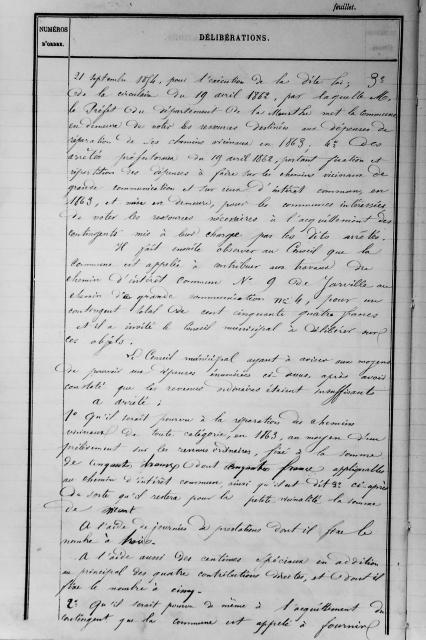 feuillet.
NUMÉROS
D'ORDRE.
DÉLIBÉRATIONS.
21 septembre 1854, pour l'exécution de la dite loi; 3º
de la circulaire du 19 avril 1862, par laquelle M.
le Préfet du département de la Meurthe met la commune
en demeure de voter les ressources destinées aux dépenses de
réparation de ses chemins vicinaux en 1863; 4º Des
arrêtés préfectoraux du 19 avril 1862, portant fixation et
répartition des dépenses à faire sur les chemins vicinaux de
grande communication et sur ceux d'intérêt commun, en
1863, et mise en demeure, pour les communes intéressées
de voter les ressources nécessaires à l'acquittement des
contingents mis à leur charge par les dits arrêtés.
Il fait ensuite observer au Conseil que la
commune est appelée à contribuer aux travaux du
chemin d'intérêt commun Nº 9 de Jarville au
chemin de grande communication nº 4, pour un
contingent total de cent cinquante quatre francs
et il a invité le Conseil municipal à délibérer sur
ces objets.
Le Conseil municipal ayant à aviser aux moyens
de pourvoir aux dépenses énumérées ci-dessus, après avoir
constaté que les revenus ordinaires étaient insuffisants
a arrêté :
1º Qu'il serait pourvu à la réparation des chemins
vicinaux de toute catégorie, en 1863, au moyen d'un
prélèvement sur les revenus ordinaires, fixé à la somme
de cinquante francs dont cinquante francs applicables
au chemin d'intérêt commun, ainsi qu'il est dit 2º ci-après
de sorte qu'il restera pour la petite vicinalité la somme
de
A l'aide de journées de prestations dont il fixe le
nombre à trois.
A l'aide aussi des centimes spéciaux en addition
au principal des quatre contributions directes, et dont il
fixe le nombre à cinq.
2º Qu'il serait pourvu de même à l'acquittement du
contingent que la commune est appelée à fournir